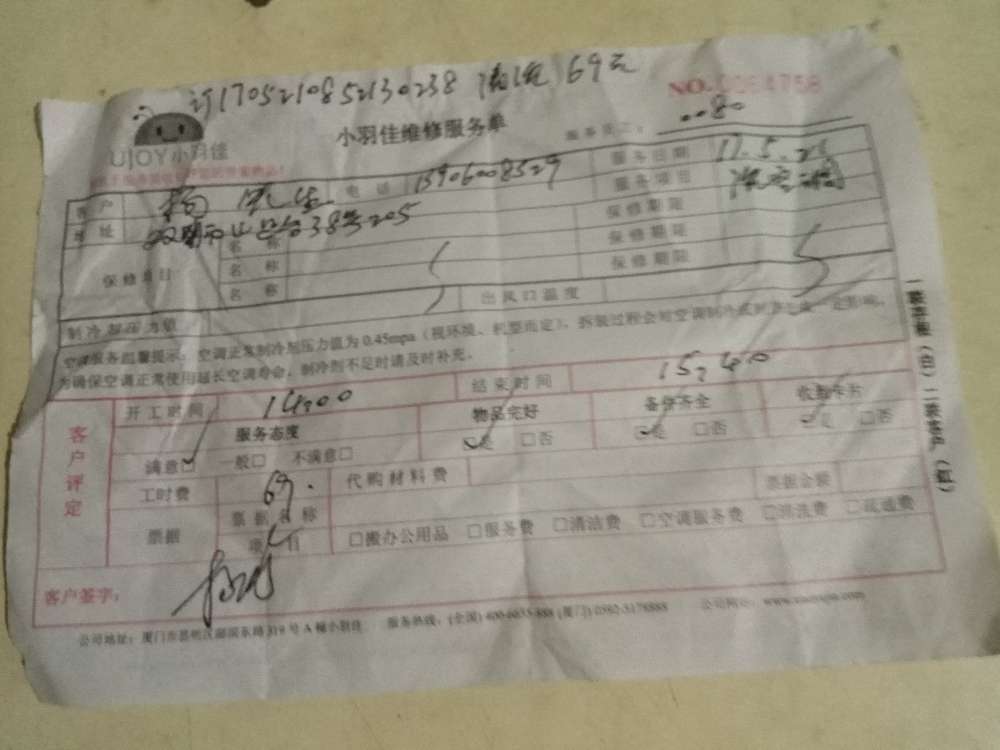 订170521085230238 清洗 69元
NO. 0264758
UJOY小羽佳
小羽佳维修服务单
服务员工: 0080
客户 杨先生 电话 13906008529 服务日期 17.5.23
地址 38号205 服务项目
保修项目 名称 保修期限
名称 保修期限
名称 保修期限
制冷剂压力值 出风口温度
空调服务温馨提示:空调正常制冷剂压力值为0.45mpa(视环境、机型而定),拆装过程会对空调制冷或制热造成一定影响,
为确保空调正常使用延长空调寿命,制冷剂不足时请及时补充。
客户评定
开工时间 14:00 结束时间 15:40
服务态度 物品完好 备件齐全 收指卡片
满意☑ 一般□ 不满意□ 是 □否 是 □否 是 □否
工时费 69. 代购材料费 票据金额
票据 票据名称
项目 □搬办公用品 □服务费 □清洁费 □空调服务费 □清洗费 □疏通费
客户签字:
公司地址:厦门市思明区湖滨东路319号A幢小羽佳 服务热线:(全国)400-6055-888 (厦门)0592-5178888 公司网址:
一联存根(白)二联客户(红)